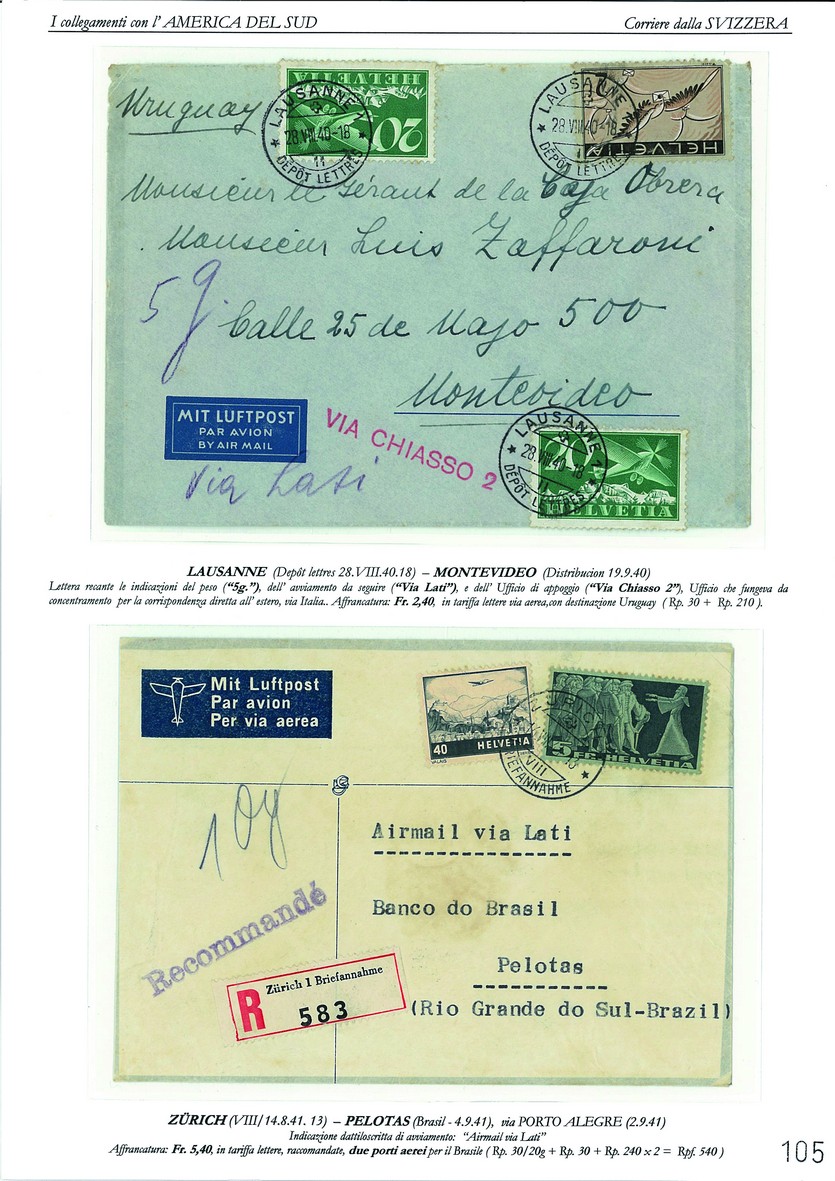 I collegamenti con l' AMERICA DEL SUD
Corriere dalla SVIZZERA
Uruguay
HELVETIA
20
LAUSANNE 1
28.VIII.40-18
11
DÉPÔT LETTRES
HELVETIA
2
LAUSANNE 1
28.VIII.40-18
11
DÉPÔT LETTRES
Monsieur le Gérant de la Caja Obrera
Monsieur Luis Zaffaroni
5g
Calle 25 de Mayo 500
Montevideo
MIT LUFTPOST
PAR AVION
BY AIR MAIL
Via Lati
VIA CHIASSO 2
LAUSANNE 1
28.VIII.40-18
11
DÉPÔT LETTRES
HELVETIA
LAUSANNE (Depôt lettres 28.VIII.40.18) – MONTEVIDEO (Distribucion 19.9.40)
Lettera recante le indicazioni del peso ("5g."), dell' avviamento da seguire ("Via Lati"), e dell' Ufficio di appoggio ("Via Chiasso 2"), Ufficio che fungeva da
concentramento per la corrispondenza diretta all' estero, via Italia.. Affrancatura: Fr. 2,40, in tariffa lettere via aerea,con destinazione Uruguay ( Rp. 30 + Rp. 210 ).
Mit Luftpost
Par avion
Per via aerea
40
HELVETIA
VALAIS
5 FR. HELVETIA
VIII
BRIEFANNAHME
10g
Airmail via Lati
Recommandé
Banco do Brasil
Pelotas
(Rio Grande do Sul-Brazil)
R
Zürich 1 Briefannahme
583
ZÜRICH (VIII/14.8.41. 13) – PELOTAS (Brasil - 4.9.41), via PORTO ALEGRE (2.9.41)
Indicazione dattiloscritta di avviamento: "Airmail via Lati"
Affrancatura: Fr. 5,40, in tariffa lettere, raccomandate, due porti aerei per il Brasile ( Rp. 30/20g + Rp. 30 + Rp. 240 x 2 = Rpf. 540 )
105